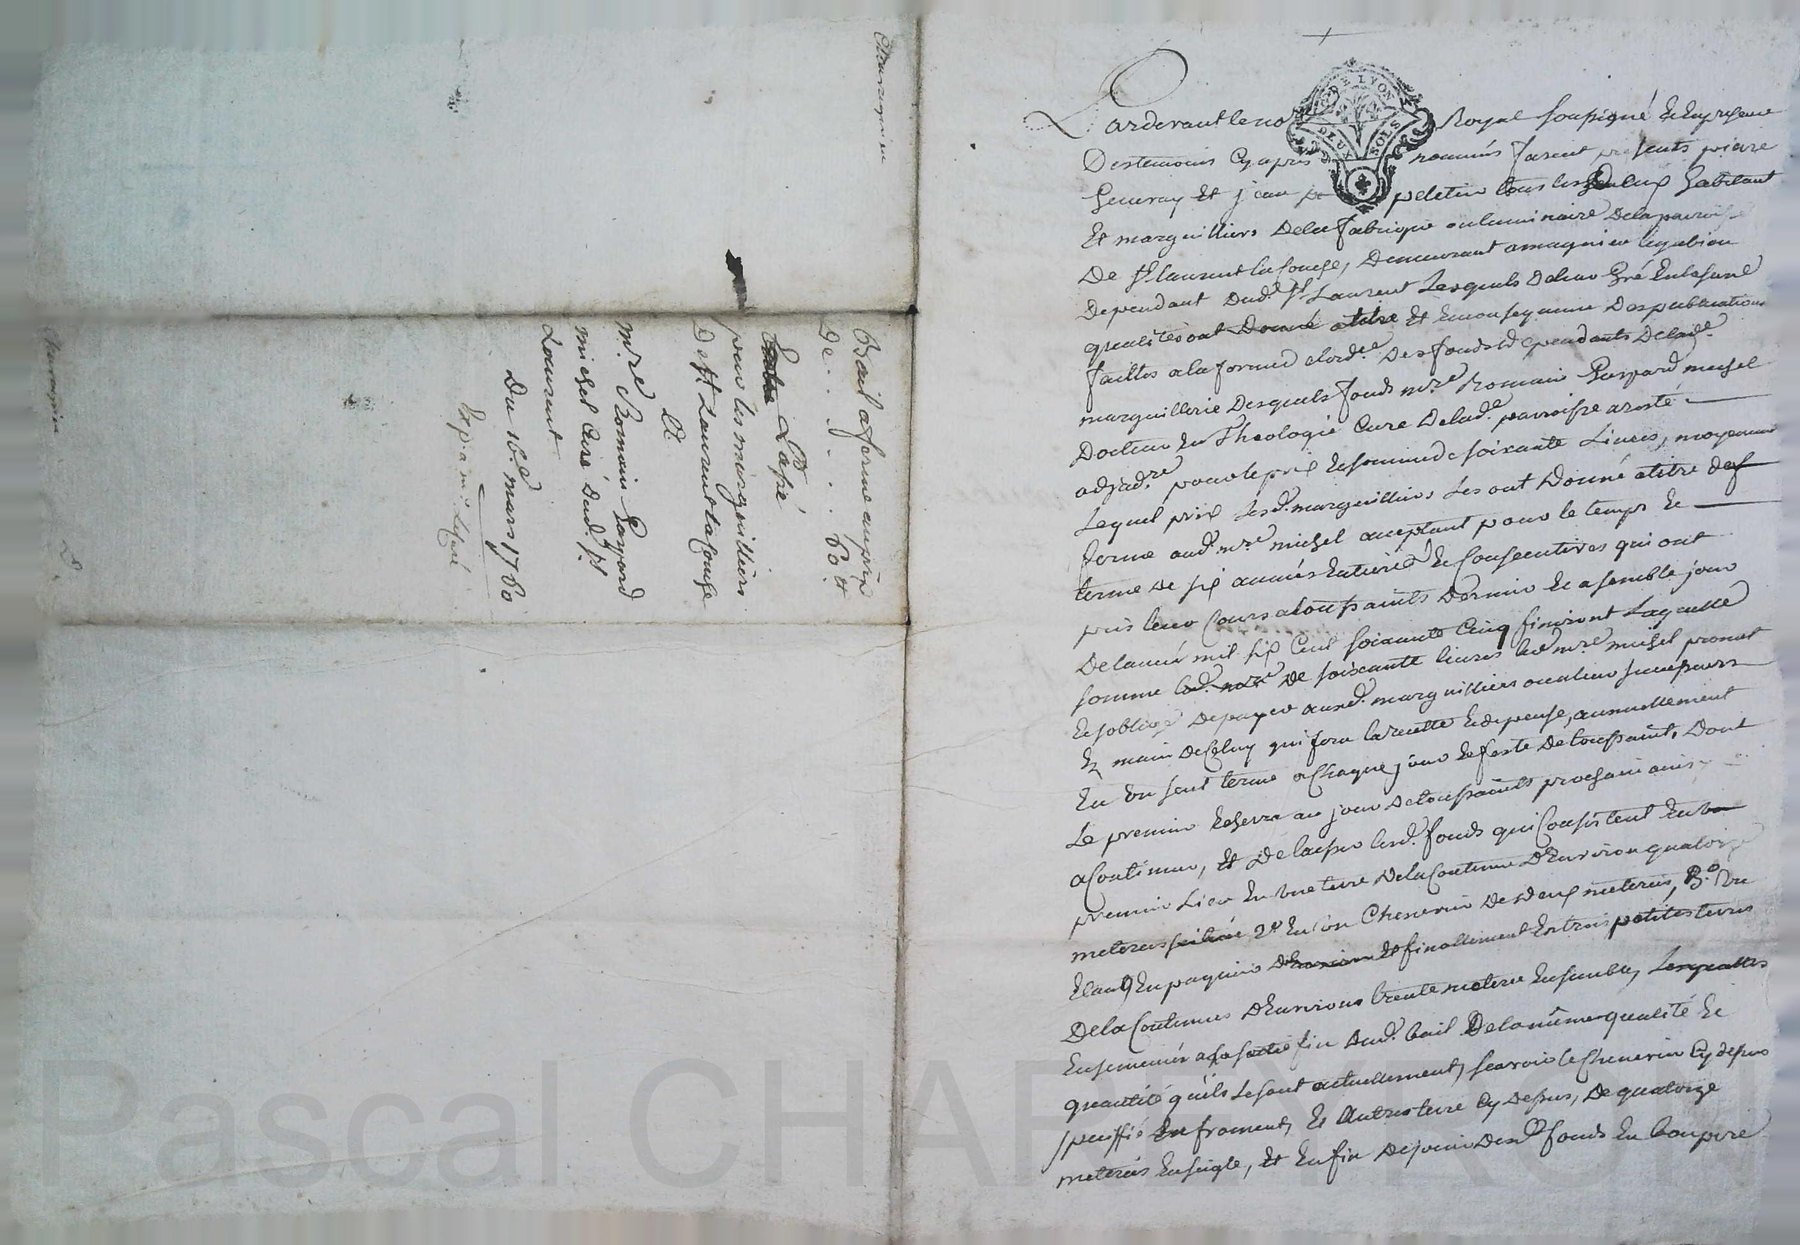 Bail a ferme au prix
De . . . . . 60.tt
Passé
pour les marguilliers
De St. Laurent la Conche
Et
mre. Romain Gaspard
michel Curé dud. St.
Laurent
Du 16e mars 1760
GD DE LYON
DEUX SOLS
Pardevant le no Royal soussigné Et En presence
Des temoins Cy apres nommés furent presents pierre
Et jean peletier tous les Deux habitant
Et marguilliers De la fabrique ou luminaire De la paroisse
De St. laurent la Conche, Demeurant a magnieu
Dependant Dud. St. Laurent Lesquels De leur Gré En lesdite
qualités ont Donné a titre Et En consequence Des publications
faittes a la forme De fonds Dependants De lade.
marguillerie Desquels fonds mre. Romain Gaspard michel
Docteur En Theologie Curé De lade. parroisse a resté
adjudre. pour le prix Et somme De soixante Livres, moyennant
Lequel prix Lesd. marguilliers Les ont Donné a titre De
ferme aud. mre. michel acceptant pour le temps Et
terme De six années Entieres Et Consecutives qui ont
pris leur Cours a toussaints Dernier Et a semblable jour
De l'année mil sept Cent soixante Cinq finiront Laquelle
somme De soixante livres led. mre. michel promet
Et s'oblige De payer auxd. marguilliers ou a leur successeurs
Et main De Celuy qui fera la recette Et depense, annuellement
En Un seul terme a Chaque jour Et feste De toussaints Dont
Le premier Echerra au jour De toussaints prochain ainsy
a Continuer, Et De laisser lesd. fonds qui Consistent En
premier Lieu En une terre De la Contenue D'Environ quatorze
meterées 2o En un Chenevier De Deux meterées, 3o. Un
Et finallement En trois petites terres
De la Contenues D'Environs trente meterée Ensemble, Lesquelles
Ensemencés a sa sortie fin dud. bail De la même qualité Et
quantité qu'ils Le sont actuellement, scavoir le Chenevier Cy dessus
speciffié En froment, Et Autres terre Cy Dessus, De quatorze
meterées En seigle, Et Enfin De jouir Desd. fonds En bon pere
Pascal CHAREYRON